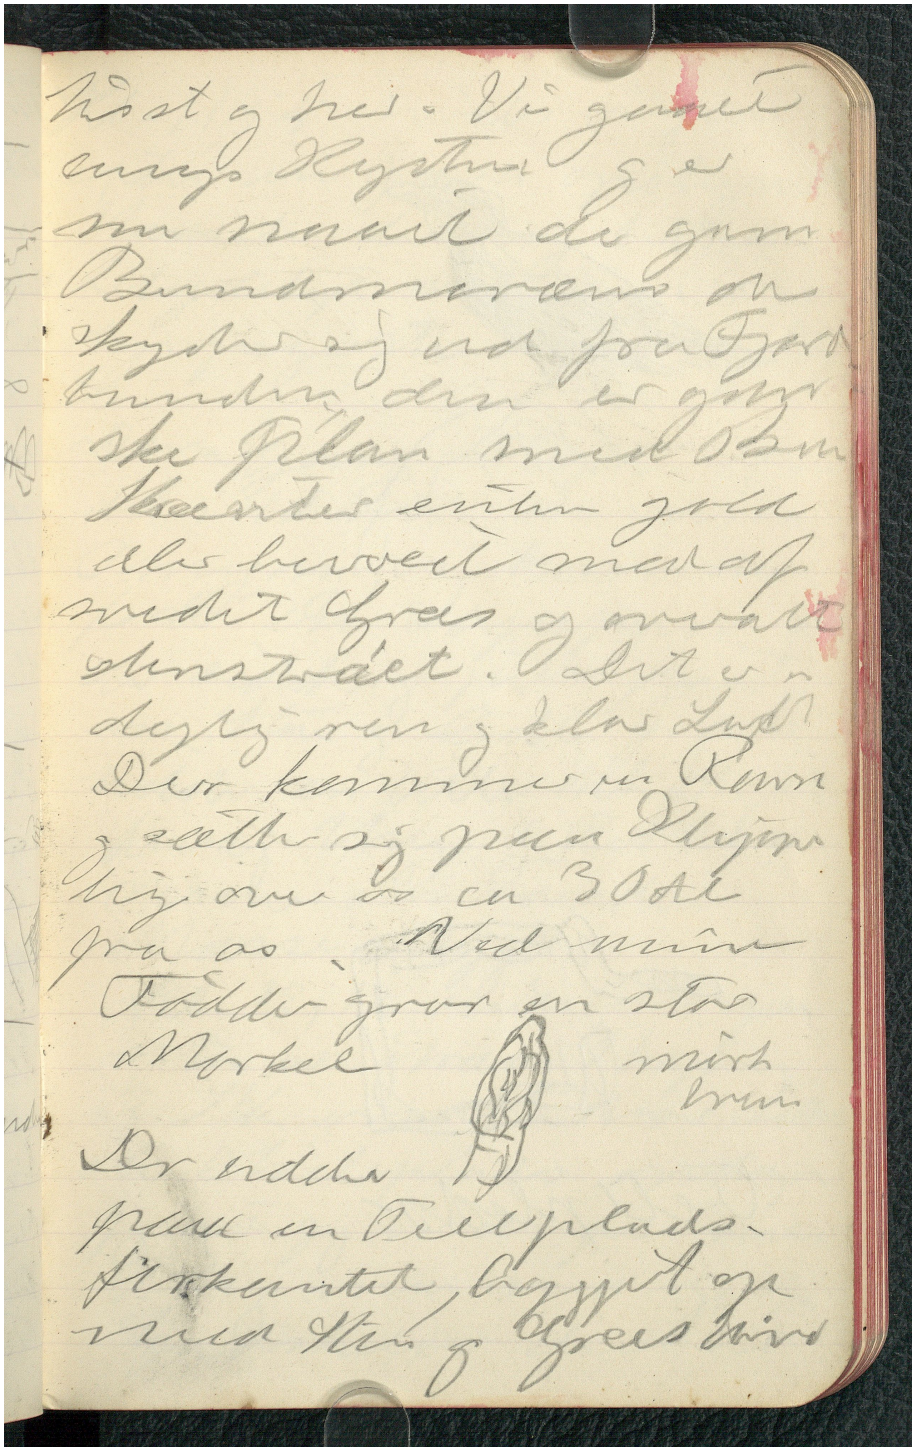 hist og her. Vi gaaet
langs Kysten og er
nu naaet de gam
Bundmoræne der
skyder sig ud fra Fjord
bunden, den er gan
ske flan med
Skrænter enten gold
eller bevoxet med af
svedet Græs og
. Det er
dejlig ren og klar Luft
Der kommer en Ravn
og sætter sig paa Klippe
lige over os ca 30 Al
fra os. Ved mine
Fødder gror en stor
Morkel mørk
brun
Der sidder
paa en Teltplads
firkantet, bygget op
med Sten og Græs